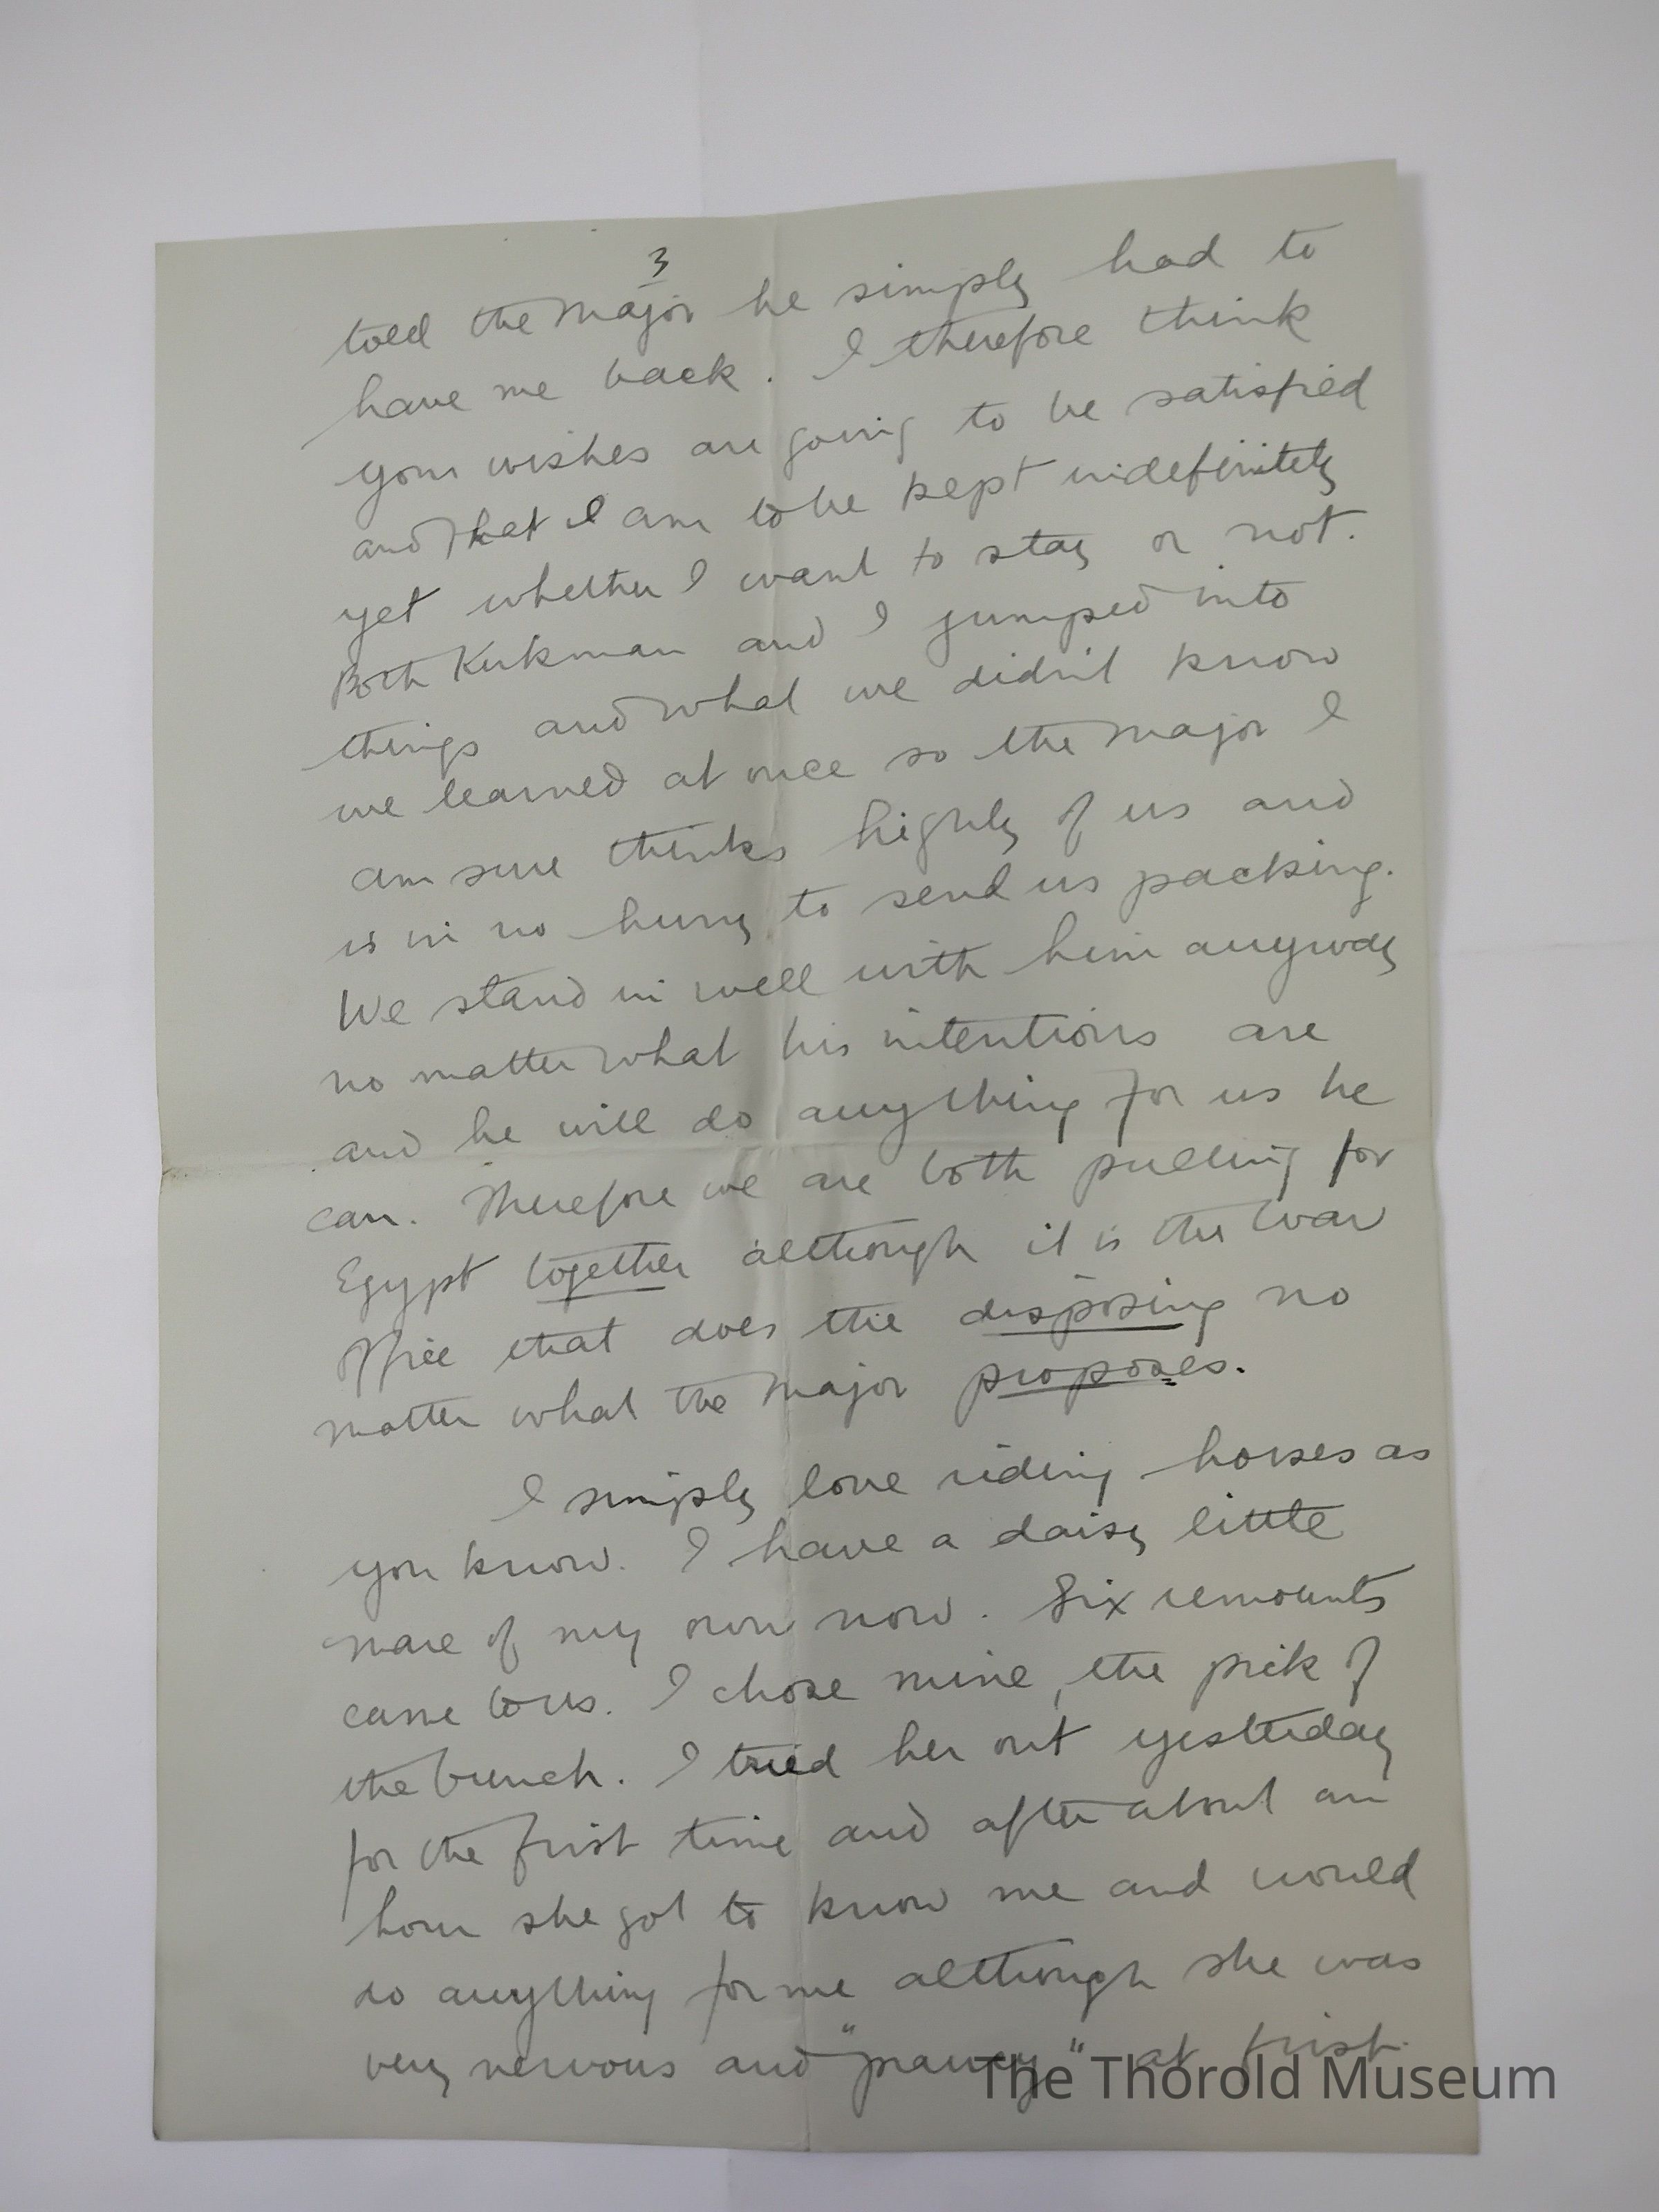 3
told the Major he simply had to
have me back. I therefore think
your wishes are going to be satisfied
and that I am to be kept indefinitely
yet whether I want to stay or not.
Both Kirkman and I jumped into
things and what we didn't know
we learned at once so the Major I
am sure thinks highly of us and
is in no hurry to send us packing.
We stand in well with him anyway
no matter what his intentions are
and he will do anything for us he
can. Therefore we are both pulling for
Egypt together although it is the War
Office that does the disposing no
matter what the Major proposes.
I simply love riding horses as
you know. I have a daisy little
mare of my own now. Six remounts
came to us. I chose mine, the pick of
the bunch. I tried her out yesterday
for the first time and after about an
hour she got to know me and would
do anything for me although she was
very nervous and "prancy" at first.
The Thorold Museum